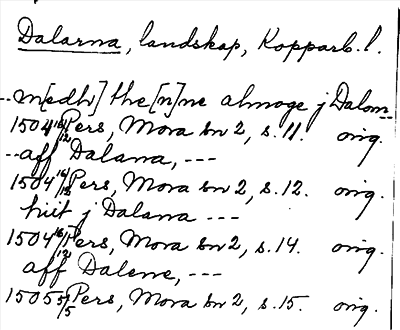 Dalarna, landskap, Kopparb. l.
--m[edh] the[n]ne almoge j Dalom--
1504 16/12 Pers, Mora sn 2, s. 11. orig.
--aff Dalana, ---
1504 16/12 Pers, Mora sn 2, s. 12. orig.
hiit j Dalana ---
1504 16/12 Pers, Mora sn 2, s. 14. orig.
aff Dalene, ---
1505 5/5 Pers, Mora sn 2, s. 15. orig.